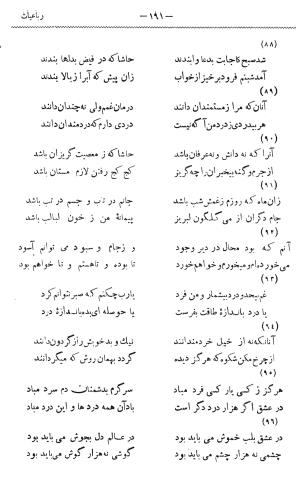 رباعیات
— ۱۹۱ —
(۸۸)
شد صبح که اجابت بدعا وابندند حاشا که در فیض بداها بندند
آمد شبنم فرود برخیز از خواب زان پیش که آبرا ز بالا بندند
(۸۹)
آنان که مرا ز مستمندان دانند درمان غم ولی نه چندان دانند
هر بیدردی ز درد من آگه نیست دردی دارم که دردمندان دانند
(۹۰)
آنرا که نه دانش و نه عرفان باشد حاشا که ز معصیت گریزان باشد
از جرم و گنه بیخبران را چه گریز کج کج رفتن لازم مستان باشد
(۹۱)
زان ماه که روزم ز غمش شب باشد جانم در تب و جسم در تب باشد
جام دگران از می گلگون لبریز پیمانهٔ من ز خون لبالب باشد
(۹۲)
آنم که بود محال در دیر وجود و ز جام و سبو دمی توانم آسود
می خورده ام و میخورم و خواهم خورد تا بوده و تا هستم و تا خواهم بود
(۹۳)
غم بیحد و درد بیشمار و من فرد یارب چکنم که صبر نتوانم کرد
یا درد باندازهٔ طاقت بفرست یا حوصله ای بده باندازهٔ درد
(۹۴)
آنانکه نه از خیل خردمندانند نیک و بد خویش را ز گردون دانند
از چرخ مکن شکوه که هر گز دیده گردد بهمان روش که میگردانند
(۹۵)
هر گز ز کسی یار کسی فرد مباد سر گرم بدشمنان دم سرد مباد
در عشق اگر هزار درد دگر است با دآن همه درد ها و این درد مباد
(۹۶)
در عشق بلب خموش می باید بود در عالم دل بجوش می باید بود
چشمی نه هزار چشم می باید بود گوشی نه هزار گوش می باید بود